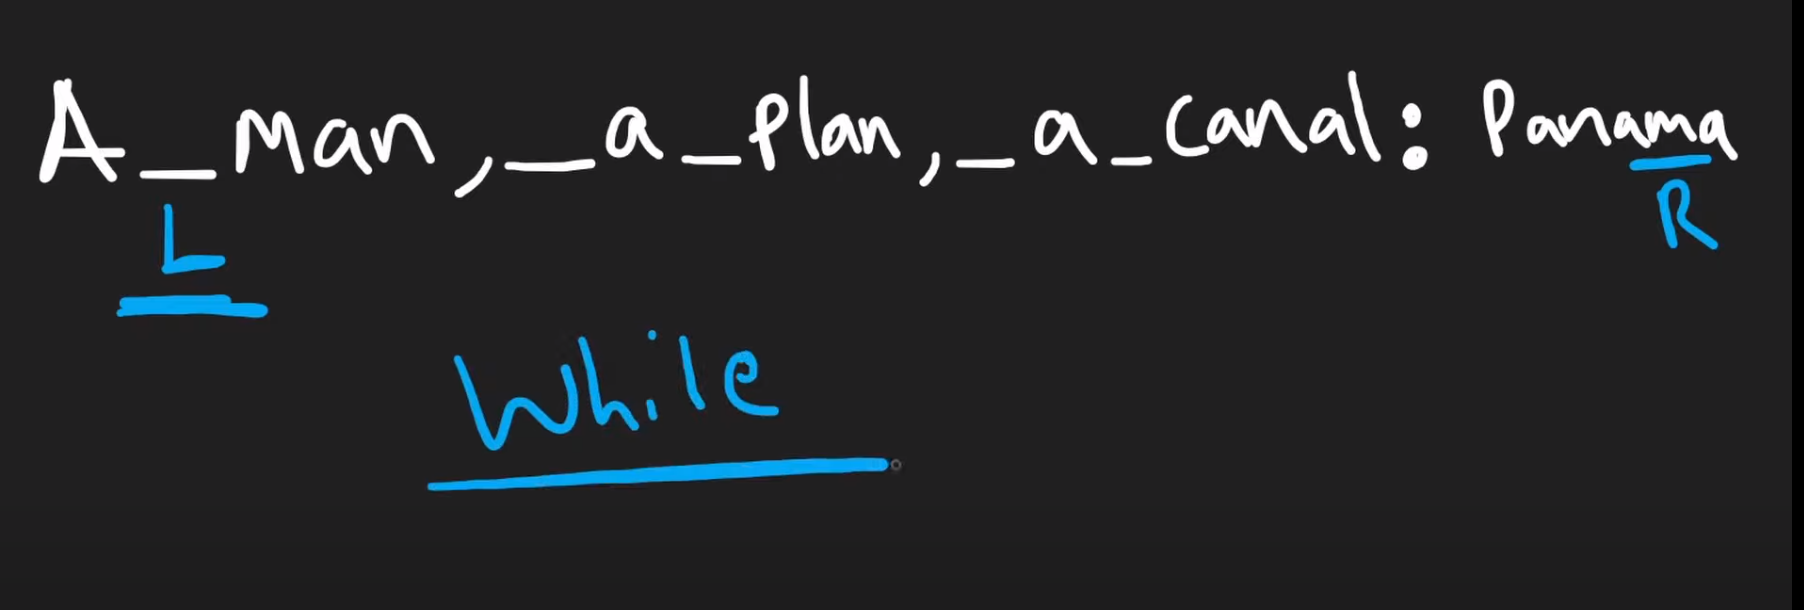 A_man,_a_plan,_a_canal: Panama
L R
While